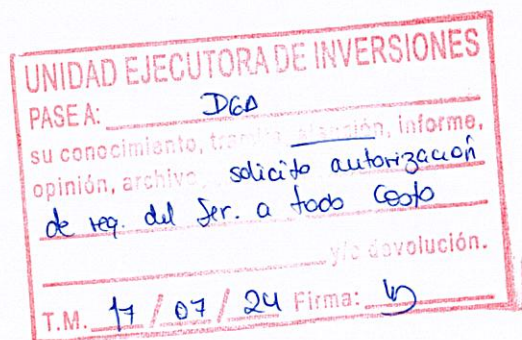 UNIDAD EJECUTORA DE INVERSIONES
PASE A: DGA
su conocimiento, tramite, atención, informe,
opinión, archivo, solicito autorización
de req. del Ser. a todo Costo
y/o devolución.
T.M. 17 / 07 / 24 Firma: